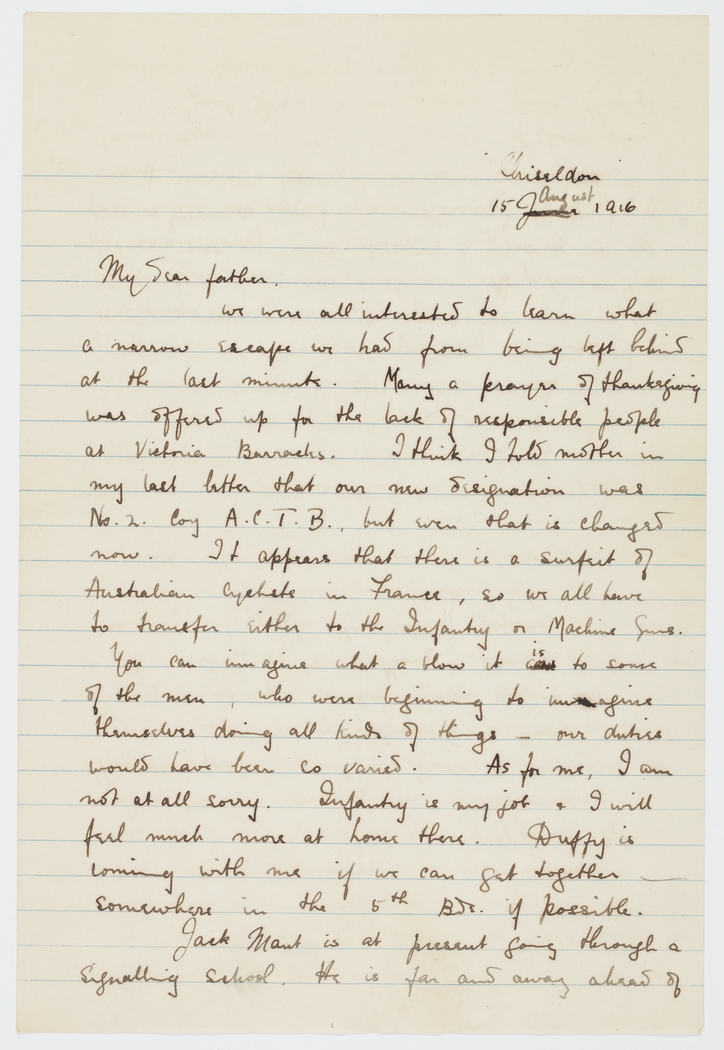 Chiseldon
15 August 1916
My dear father.
we were all interested to learn what
a narrow escape we had from being left behind
at the last minute. Many a prayer of thanksgiving
was offered up for the lack of responsible people
at Victoria Barracks. I think I told mother in
my last letter that our new designation was
No. 2. Coy A.C.T.B., but even that is changed
now. It appears that there is a surfeit of
Australian Cyclists in France, so we all have
to transfer either to the Infantry or Machine Guns.
You can immagine what a blow it is to some
of the men, who were beginning to imagine
themselves doing all kinds of things - our duties
would have been so varied. As for me, I am
not at all sorry. Infantry is my job & I will
feel much more at home there. Duffy is
coming with me if we can get together -
somewhere in the 5th Bde. if possible.
Jack Mant is at present going through a
signalling school. He is far and away ahead of